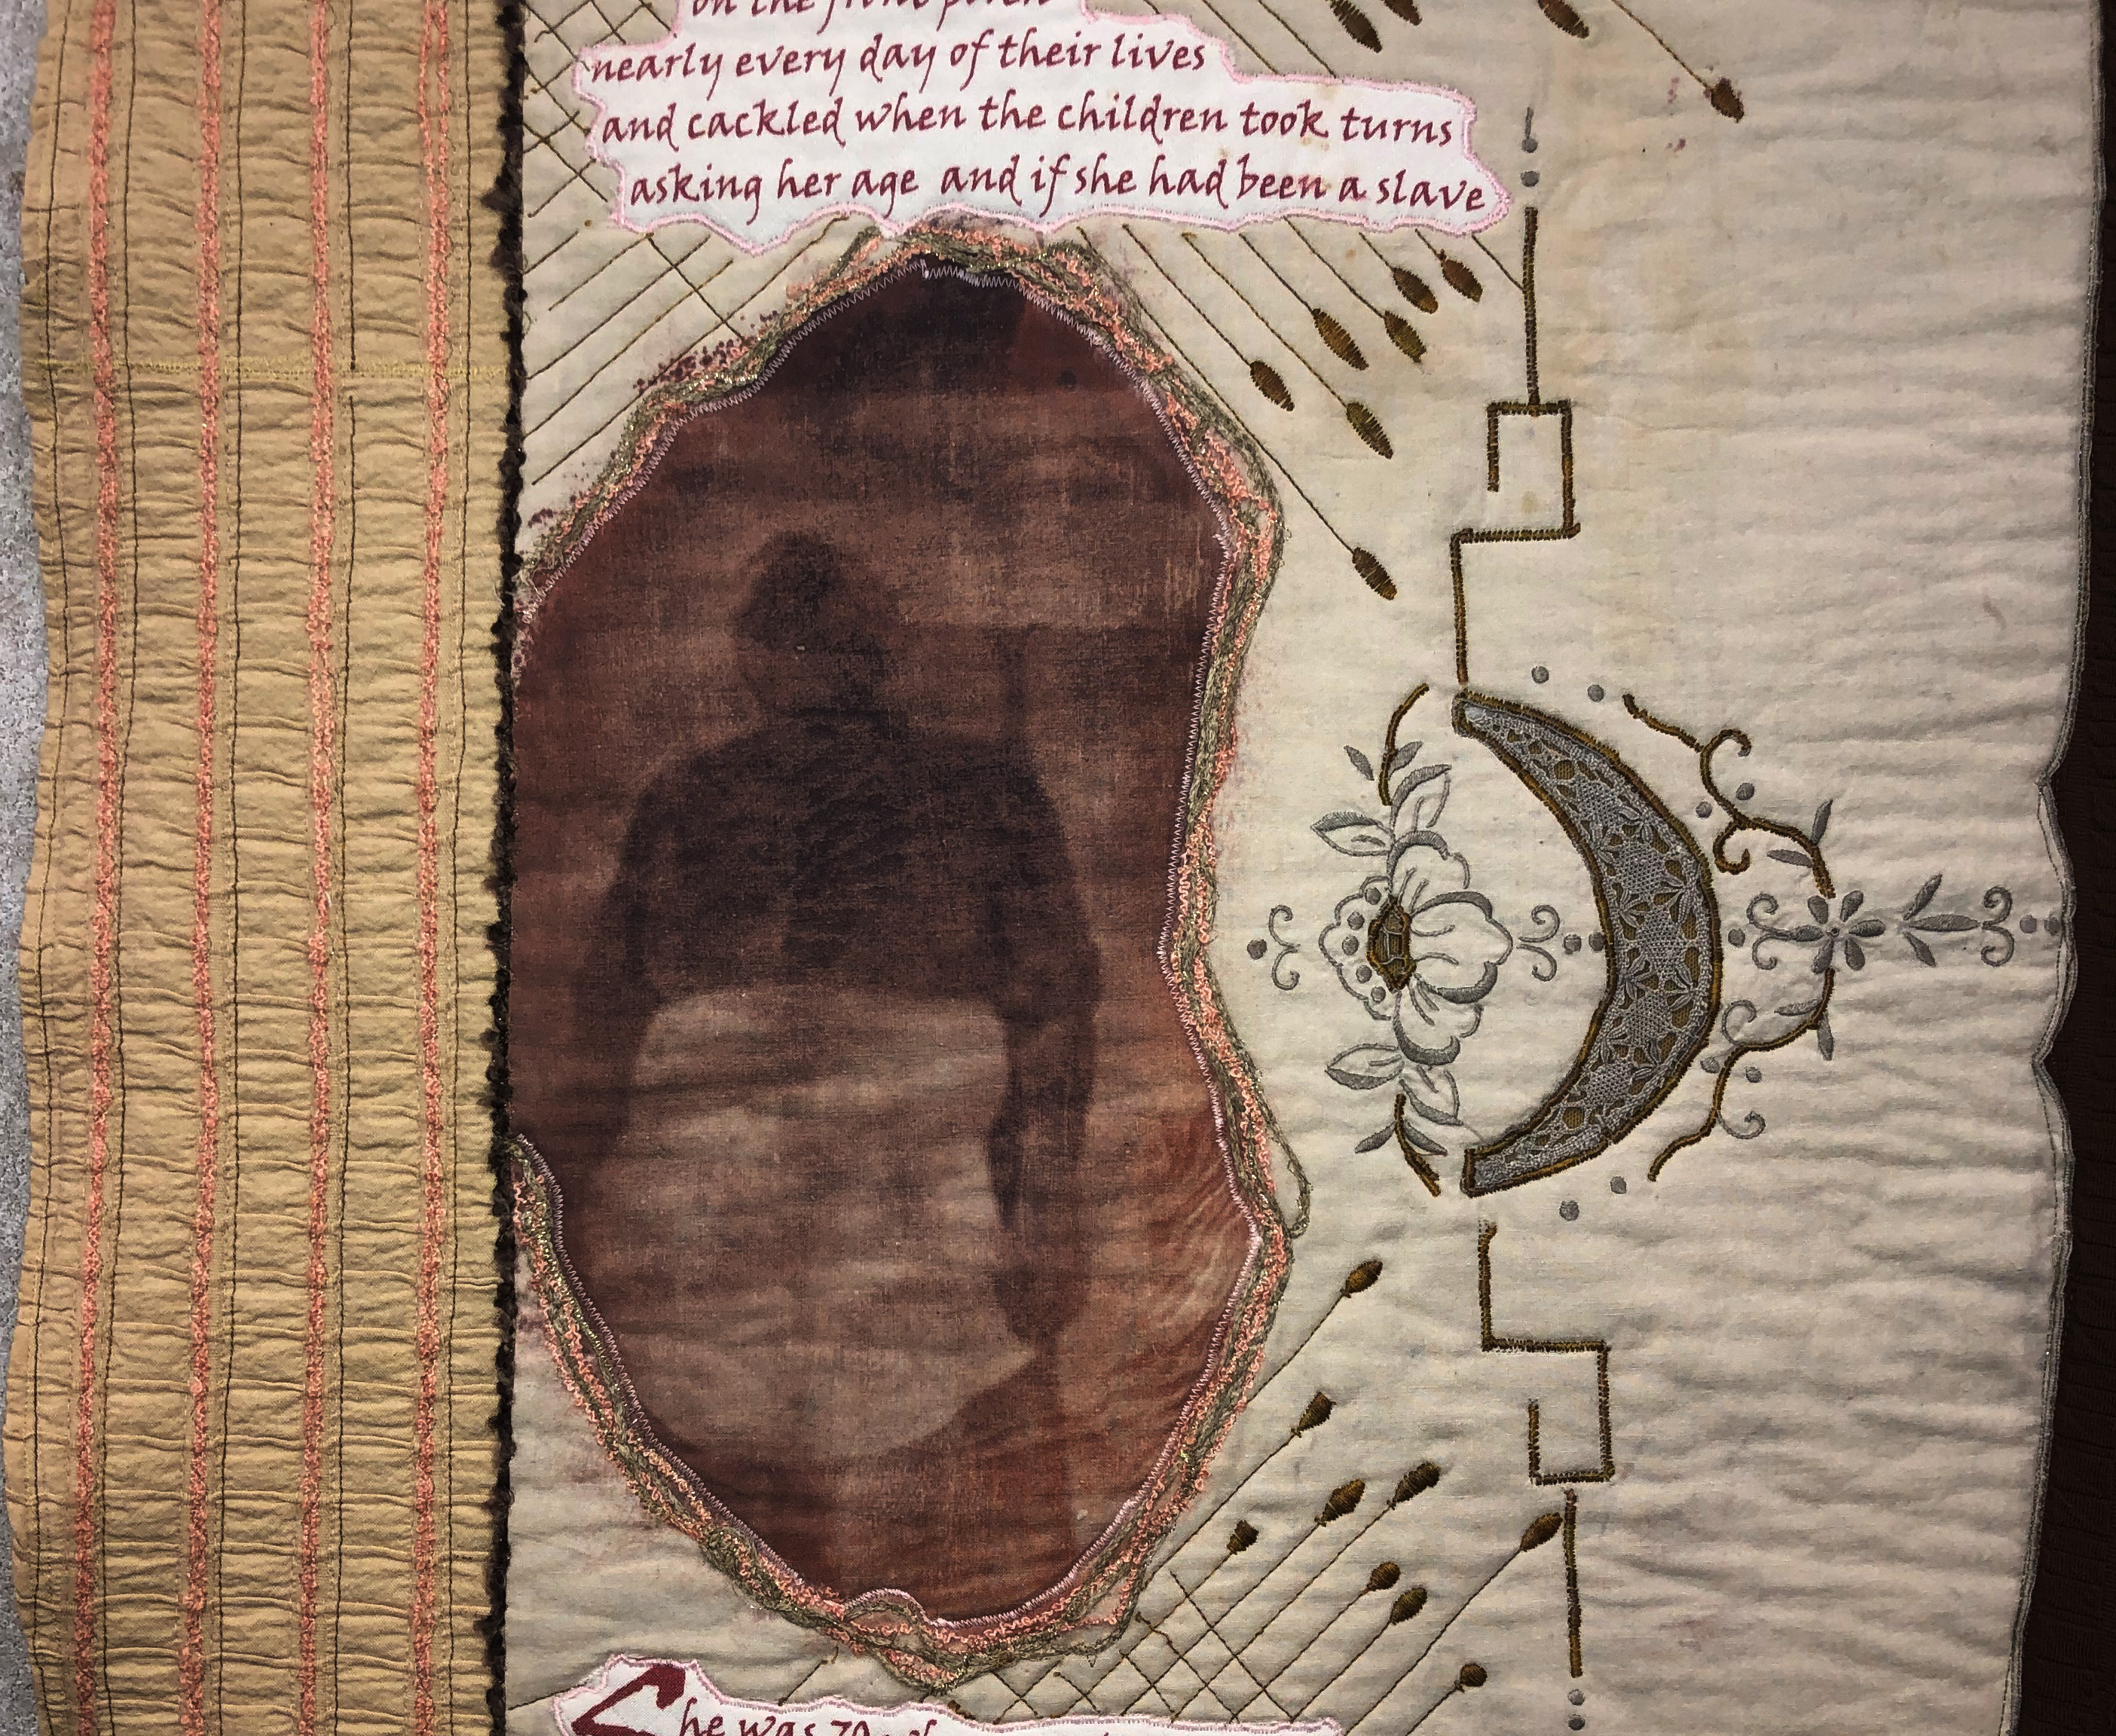 on the front porch
nearly every day of their lives
and cackled when the children took turns
asking her age and if she had been a slave
She was 70